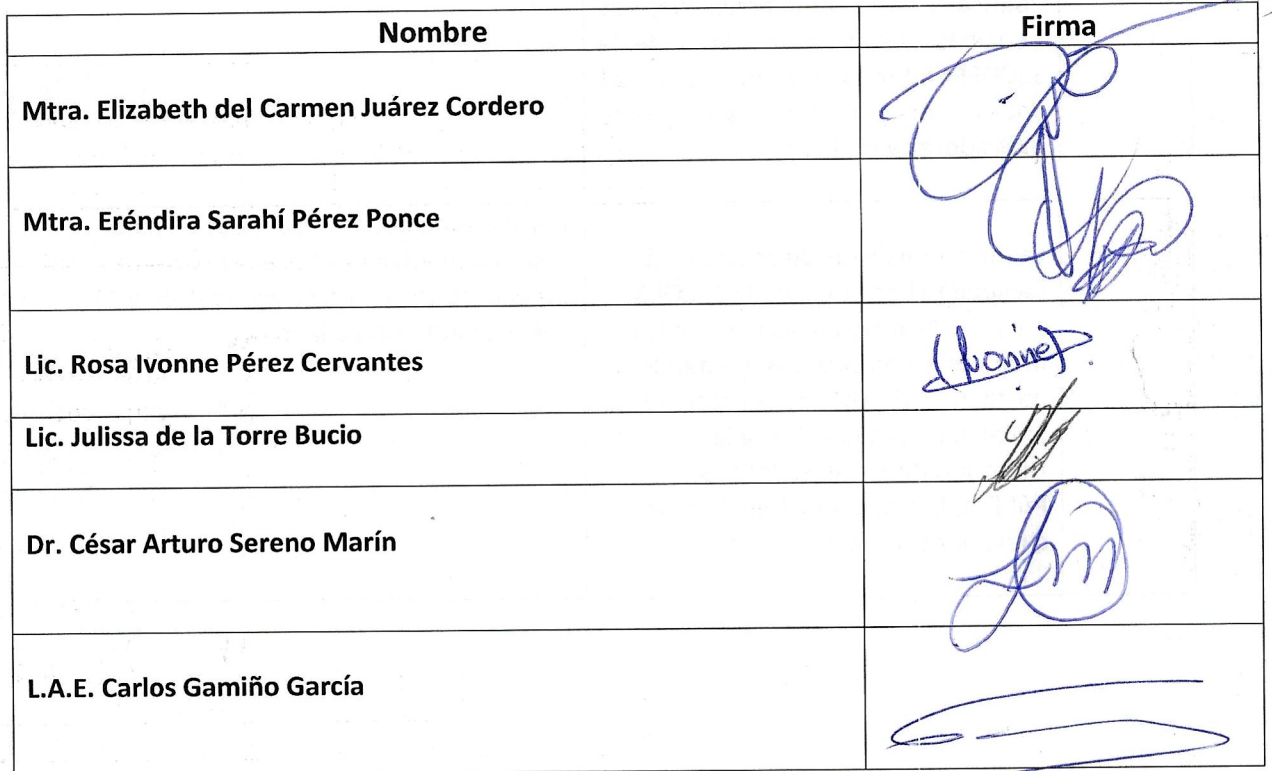 Nombre Firma
Mtra. Elizabeth del Carmen Juárez Cordero
Mtra. Eréndira Sarahí Pérez Ponce
Lic. Rosa Ivonne Pérez Cervantes IvonneP.
Lic. Julissa de la Torre Bucio
Dr. César Arturo Sereno Marín
L.A.E. Carlos Gamiño García